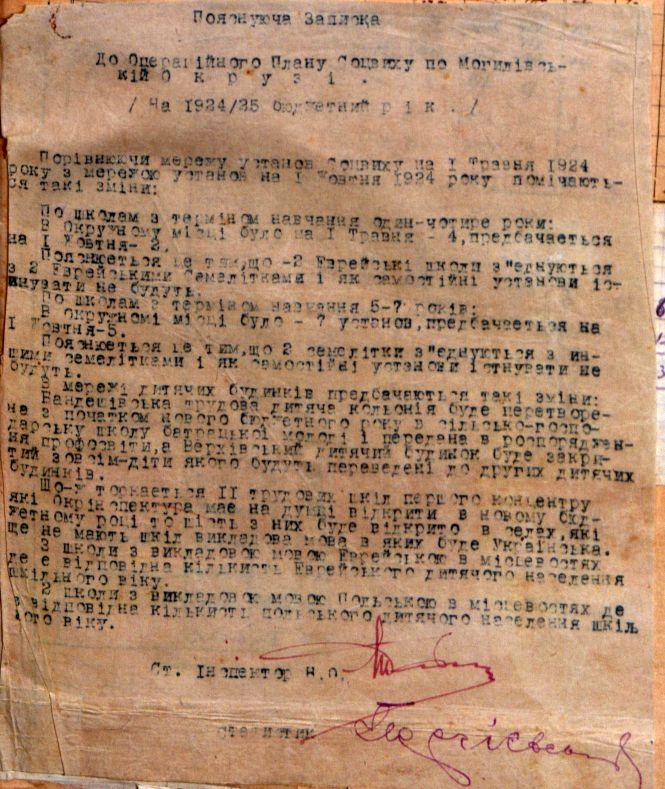 Пояснуюча Записка
До Операційного Плану Соцвиху по Могилівсь-
кій Окрузі.
/ На 1924/25 бюджетний рік. /
Порівнюючи мережу установ Соцвиху на І Травня 1924
року з мережою установ на І Жовтня 1924 року помічають-
ся такі зміни:
По школам з терміном навчання один-чотире роки:
В Окружному місці було на І Травня - 4,предбачається
на І Жовтня- 2.
Пояснюється це тим,що -2 Еврейські школи з"еднуються
з 2 Еврейськими Семелітками і як самостійні установи іст-
инувати не будуть.
По школам з терміном навчання 5-7 років:
В окружномі місці було - 7 установ,предбачається на
І Жовтня-5.
Пояснюється це тим,що 2 семелітки з"еднуються з ин-
шими семелітками і як самостійні установи істнувати не
будуть.
В мережі дитячих будинків предбачаються такі зміни:
Вандешівська трудова дитяча кольонія буде перетворе-
на з початком нового бюджетного року в сільсько-госпо-
дарську школу батрацької молоді і передана в розпоряджен-
ня профосвіти,а Верхівський дитячий будинок буде закри-
тий зовсім-діти якого будуть переведені до других дитячих
будинків.
Що-ж торкається ІІ трудових шкіл першого концентру
які Окрінспектура має на думці відкрити в новому бюд-
жетному році то шість з них буде відкрито в селах,які
ще не мають шкіл викладова мова в яких буде Українська.
3 школи з викладовою мовою Еврейською в місцевостях
де е відповідна кількість Еврейського дитячого населення
шкільного віку.
2 школи з викладовою мовою Польською в місцевостях де
е відповідна кількисть польського дитячого населення шкіль
ного віку.
Ст. Інспектор Н.О.
статистик